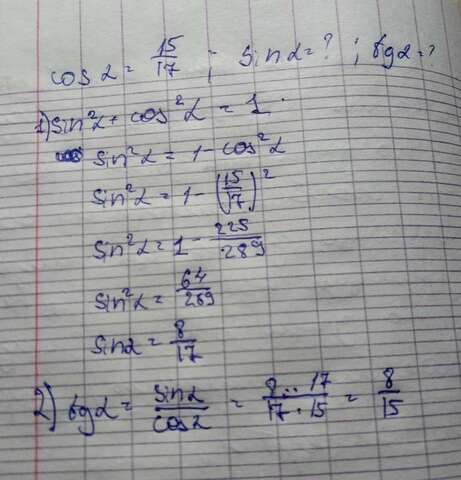 cos α = 15/17 ; sin α = ? ; tg α = ?
1) sin²α + cos²α = 1
sin²α = 1 - cos²α
sin²α = 1 - (15/17)²
sin²α = 1 - 225/289
sin²α = 64/289
sin α = 8/17
2) tg α = sin α/cos α = 8 · 17/17 · 15 = 8/15